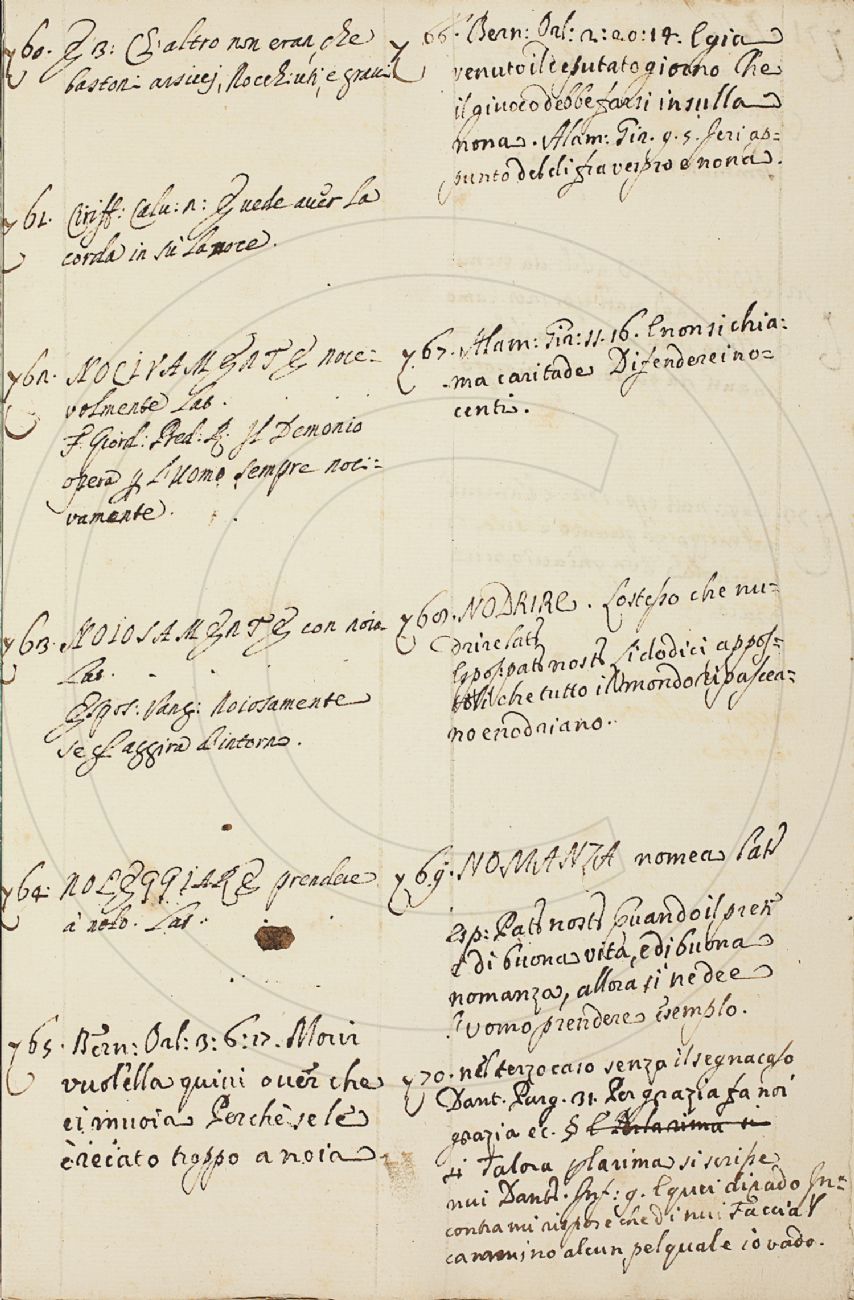 760. 3: Ch'altro non eran, che
bastoni arsicci, Nocchiuti, e gravi
761. Ciriff: Calv: 2: Vuede aver la
corda in sù la noce.
762. NOCIVAMENTE noce=
volmente Lat.
F. Giord: Pred: R: Il Demonio
opera p l'uomo sempre noci=
vamente.
763. NOIOSAMENTE con noia
Lat.
Espos: Vang: Noiosamente
se gl'aggira d'intorno.
764. NOLEGGIARE prendere
à nolo. Lat.
765. Bern: Orl: 3: 6: 17. Morir
vuol'ella quivi over che
ei muoia Perchè se le
è recato troppo a noia
766. Bern: Orl: 2: 20: 14. E gia
venuto il deputato giorno Che
il giuoco debbe farsi in sulla
nona. Alam: Gir. 9. 5. Ieri ap=
punto del di fra vespro e nona.
767. Alam: Gir: 11. 16. E non si chia=
ma caritade Difendere i no=
centi.
768. NODRIRE. Lo stesso che nu=
drire Lat
Espos: pat: nost: Li dodici appos=
toli che tutto il mondo ripascea=
no e nodriano.
769. NOMANZA nomea Lat
Esp: Pat: nost: Quando il pren
è di buona vità, e di buona
nomanza, allora si ne dee
l'uomo prendere esemplo.
770. nel terzo caso senza il segnacaso
Dant. Purg. 31. Per grazia fa noi
grazia ec. § E
si Talora p la rima si scrisse
nui Dant. Inf: 9. E quei di rado In=
contra mi rispose che di nui Faccia l
cammino alcun, pel quale io vado.